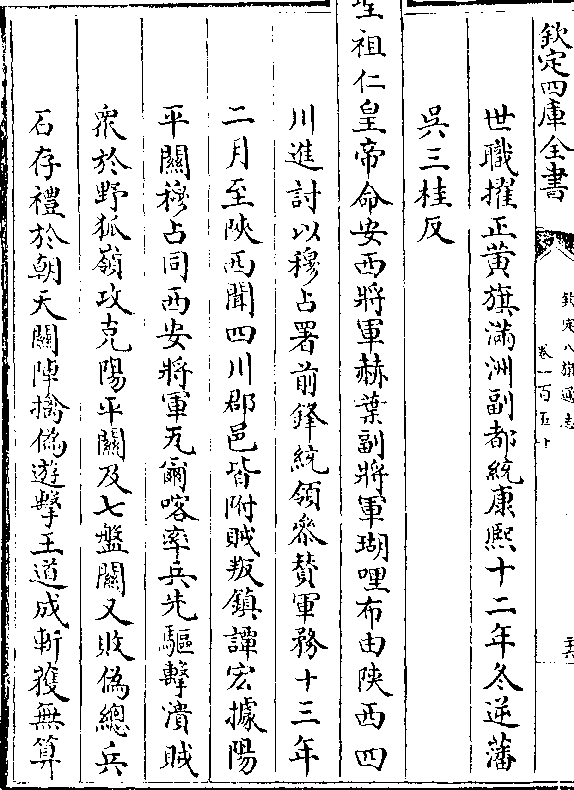 欽定四庫全書
欽定八旗通志
卷一百五十
世職擢正黃旗滿洲副都統康熙十二年冬逆藩
吳三桂反
聖祖仁皇帝命安西將軍赫葉副將軍瑚哩布由陜西四
川進討以穆占署前鋒統領叅贊軍務十三年
二月至陜西聞四川郡邑皆附賊叛鎮譚宏據陽
平關穆占同西安將軍瓦爾喀率兵先驅擊潰賊
衆於野狐嶺攻克陽平關及七盤關又敗偽總兵
石存禮於朝天關陣擒偽遊擊王道成斬獲無算